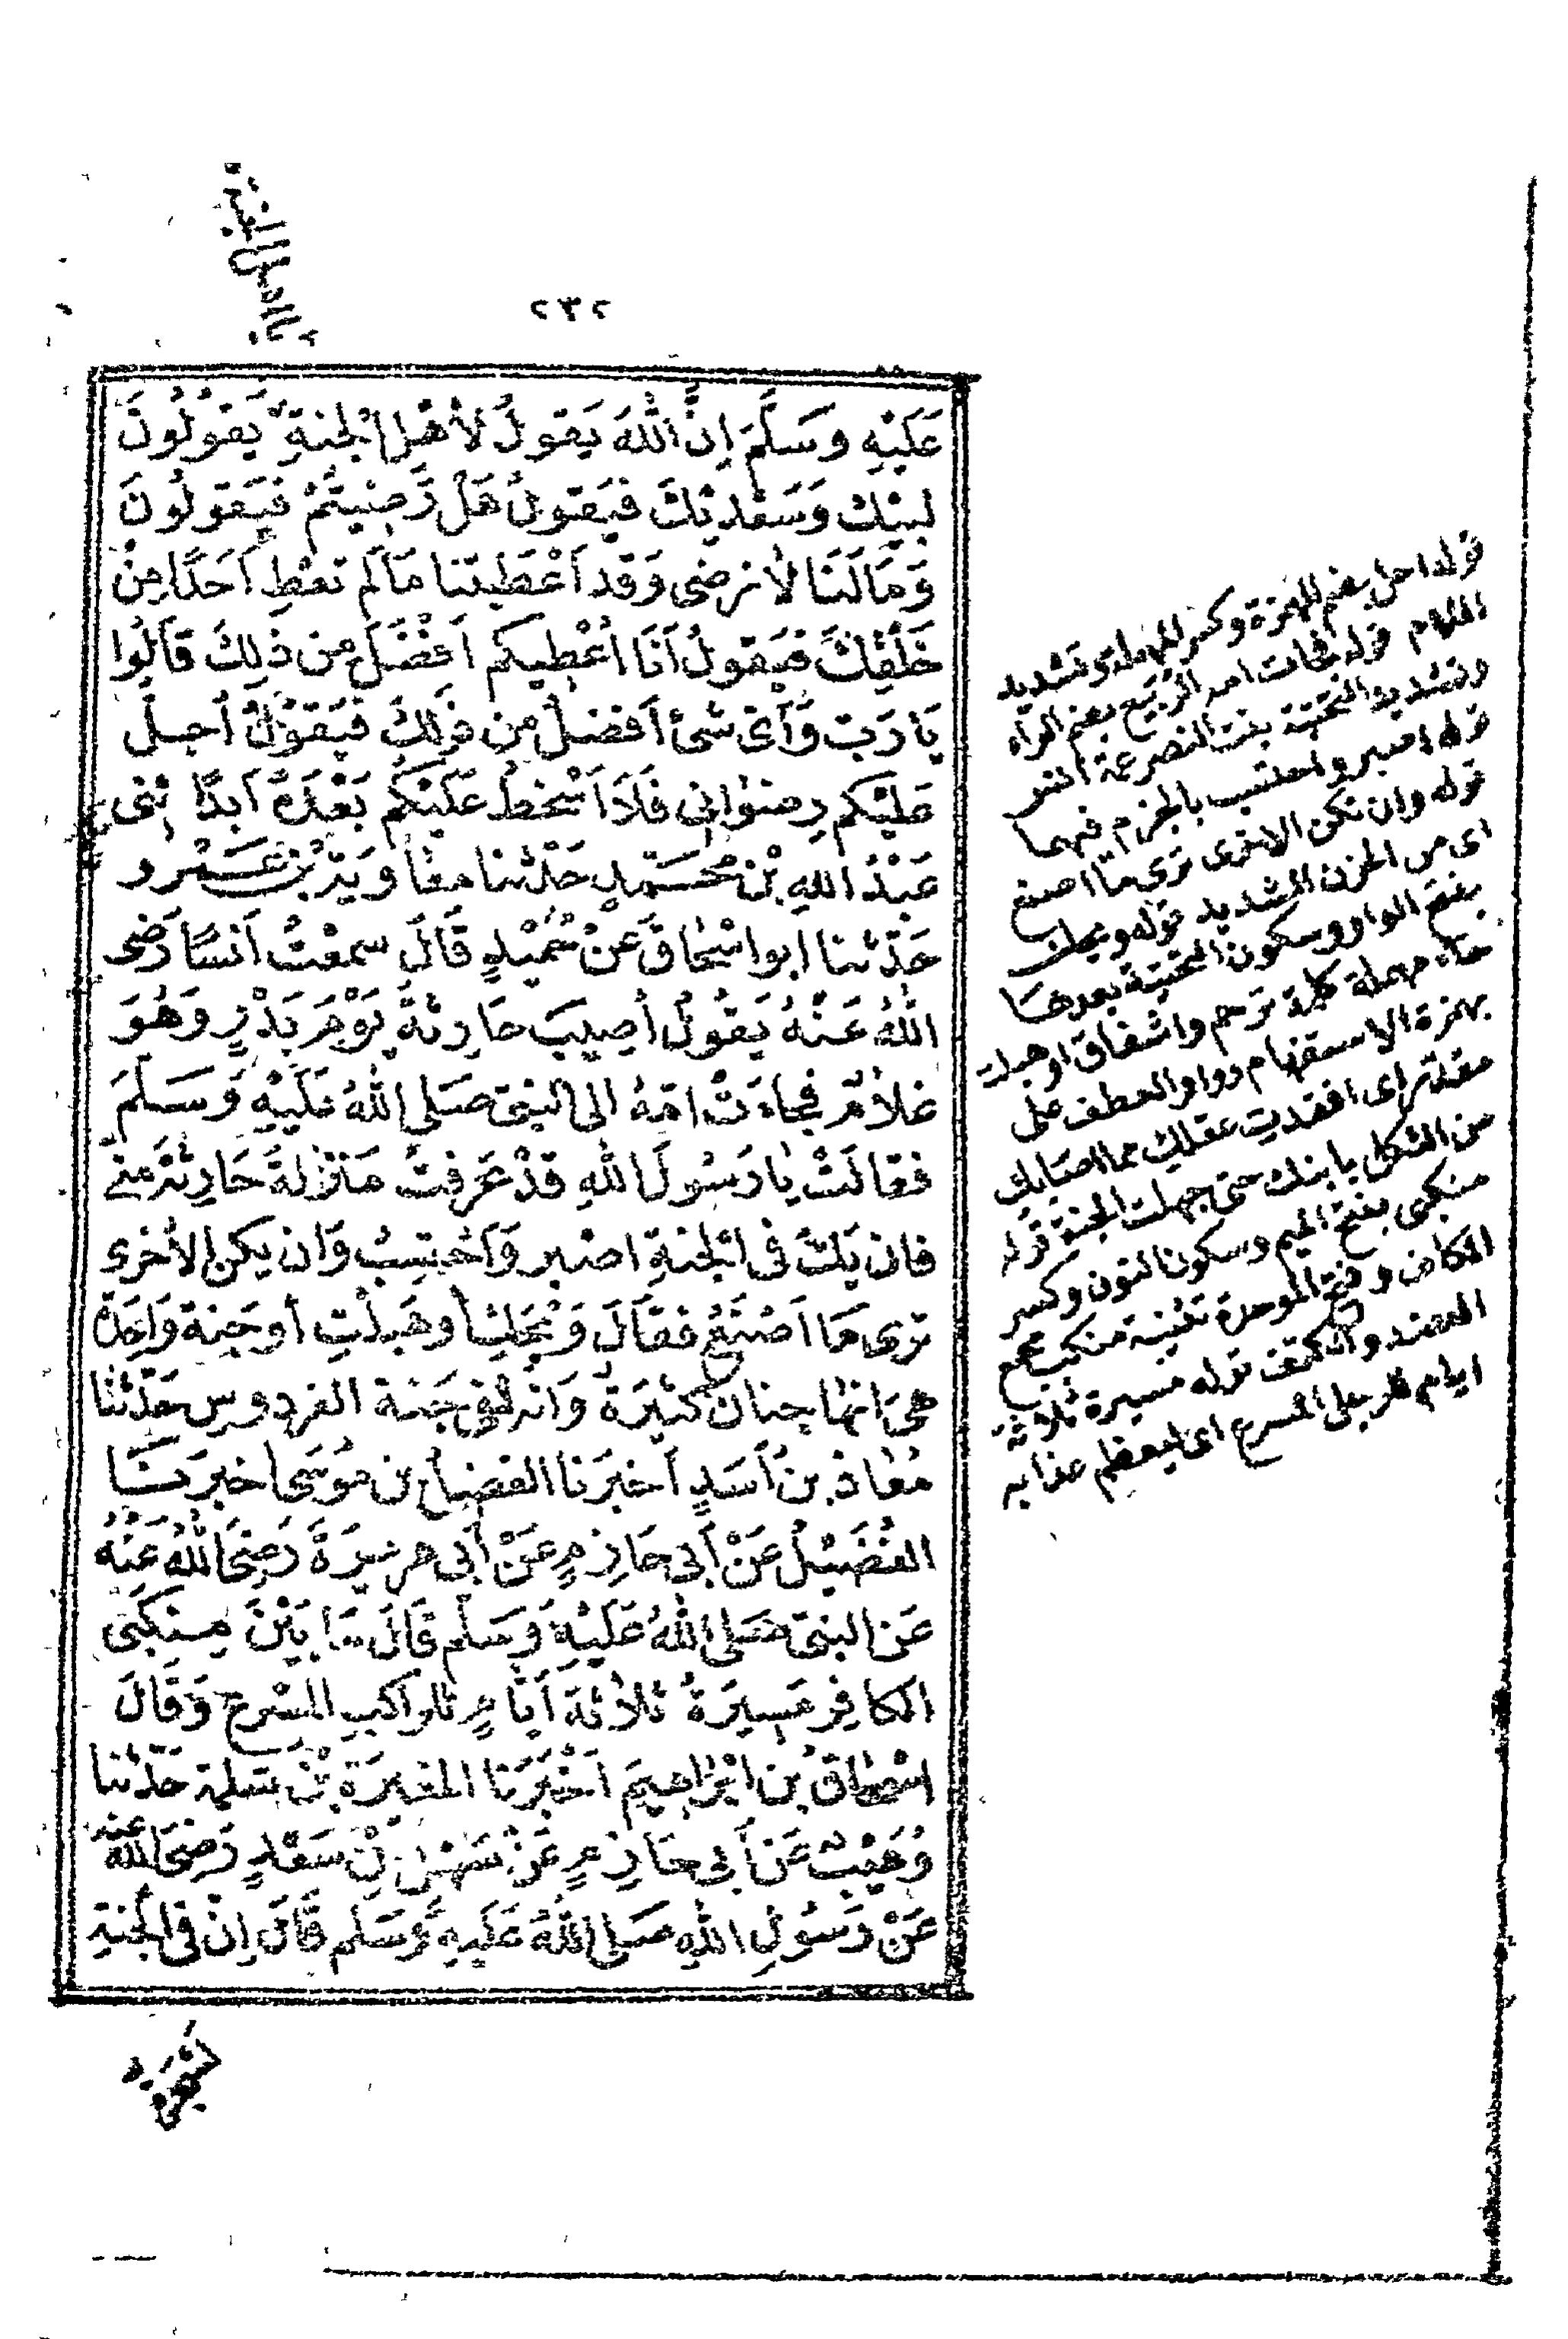 يا اهل الجنة
٢٣٢
عَلَيْهِ وَسَلَّمَ اِنَّ اللّٰهَ يَقولُ لأهْلِ الْجنةِ يَقُولُونَ
لبيْك وَسَعْديْكَ فيَقولُ هَلْ رَضِيتُمْ فيَقولُونَ
وَمَا لَنَا لا نرضى وَقد اَعْطَيتنا مَا لَم تعْطِ اَحَدًا مِنْ
خَلْقِكَ فيَقولُ اَنَا اُعْطِيكم اَفْضَلَ من ذٰلِكَ قالُوا
يَا رَبّ وَاَىّ شئ اَفضلُ من ذٰلكَ فيَقولُ اُحِلّ
عَليْكم رِضوٰانى فَلاَ اَسْخطُ عَلَيْكُم بَعْدَهُ اَبدًا ثنى
عَبْدُ اللهِ بْن مُحَمّدٍ حَدّثنا معٰاوِيَةُ بْن عَمْرو
حَدّثنا ابو اسْحاقَ عَنْ حُمَيْدٍ قَالَ سمعْتُ اَنسًا رَضى
اللّٰهُ عَنْهُ يَقُولُ اُصِيبَ حَارِثةُ يَوْمَ بَدْرٍ وَهُوَ
غلاٰمٌ فجاءَتْ امّهُ الى النبىّ صَلى اللّٰهُ عَلَيْهِ وَسَلمَ
فقالَتْ يٰا رَسُولَ اللهِ قدْ عَرَفتَ مَنزلةَ حَارِثةَ مِنّى
فان يَكُ فى الْجنةِ اصْبر وَاَحْتسِبْ وَان يكن الاُخرى
ترى مَا اَصْنَعُ فقالَ وَيْحَكِ أوَهَبلْتِ أوَجَنة وَاحِدَة
هِىَ انهٰا جنان كثيرَةٌ وَانّه لفى جَنة الفردوس حدّثنا
مُعٰاذ بن أَسَدٍ أَخبَرَنا الفضلُ بن مُوسَى اخبرَنَا
الفُضَيْلُ عَنْ أَبى حَازمٍ عَنْ أَبى هريْرَةَ رَضِىَ اللّٰهُ عَنْهُ
عَن النبىّ صَلى اللّٰهُ عَلَيْهِ وَسَلم قَالَ مَا بَيْنَ مِنكَبَى
الكافِر مَسِيرَةُ ثلاٰثةَ اَيّامٍ للرّاكبِ المسْرعِ وَقَالَ
اسْحٰاقُ بن ابْرٰاهيمَ اَخْبَرَنا المغيرَة بْن سَلمة حَدّثنا
وُهَيْبٌ عَن أَبى حَازمٍ عَنْ سَهْل بْن سَعْدٍ رَضىَ اللّٰه عنه
عَنْ رَسُولِ اللّٰهِ صَلى اللّٰهُ عَلَيهِ وَسَلم قالَ اِنّ فى الْجنةِ
لشجرة
قوله احل بضم الهمزة وكسر المهملة وتشديد
اللام قوله فجاءت امه الربيع بضم الراء
وتشديد التحتية بنت النضر عمة انس
قوله اصبر واحتسب بالجزم فيهما
قوله وان تكن الاخرى ترى ما اصنع
اى من الحزن الشديد قوله ويحك
بفتح الواو وسكون التحتية بعدها
حاء مهملة كلمة ترحم واشفاق اوهبلت
بهمزة الاستفهام وواو العطف على
مقدر اى افقدت عقلك مما اصابك
من الثكل بابنك حتى جهلت الجنة قوله
منكبى بفتح الميم وسكون النون وكسر
الكاف وفتح الموحدة تثنية منكب مجمع
العضد والكتف قوله مسيرة ثلاثة
ايام للراكب المسرع اى ليعظم عذابه